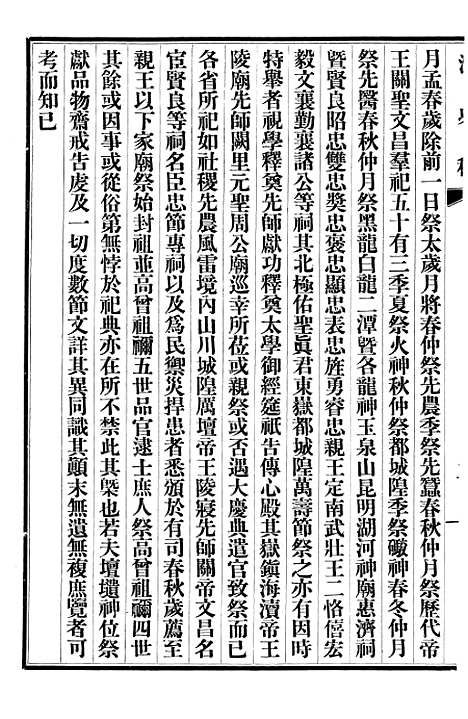 月孟春歲除前一日祭太歲月將春仲祭先農季祭先蠶春秋仲月祭歷代帝
王關聖文昌羣祀五十有三季夏祭火神秋仲祭都城隍季祭礮神春冬仲月
祭先醫春秋仲月祭黑龍白龍二潭曁各龍神玉泉山昆明湖河神廟惠濟祠
曁賢良昭忠雙忠奬忠褒忠顯忠表忠旌勇睿忠親王定南武壯王二恪僖宏
毅文襄勤襄諸公等祠其北極佑聖眞君東嶽都城隍萬壽節祭之亦有因時
特舉者視學釋奠先師獻功釋奠太學御經筵祇告傳心殿其嶽鎭海瀆帝王
陵廟先師闕里元聖周公廟巡幸所莅或親祭或否遇大慶典遣官致祭而已
各省所祀如社稷先農風雷境內山川城隍厲壇帝王陵寢先師關帝文昌名
宦賢良等祠名臣忠節專祠以及爲民禦災捍患者悉頒於有司春秋歲薦至
親王以下家廟祭始封祖並高曾祖禰五世品官逮士庶人祭高曾祖禰四世
其餘或因事或從俗第無悖於祀典亦在所不禁此其槩也若夫壇壝神位祭
獻品物齋戒告虔及一切度數節文詳其異同識其顚末無遺無複庶覽者可
考而知已